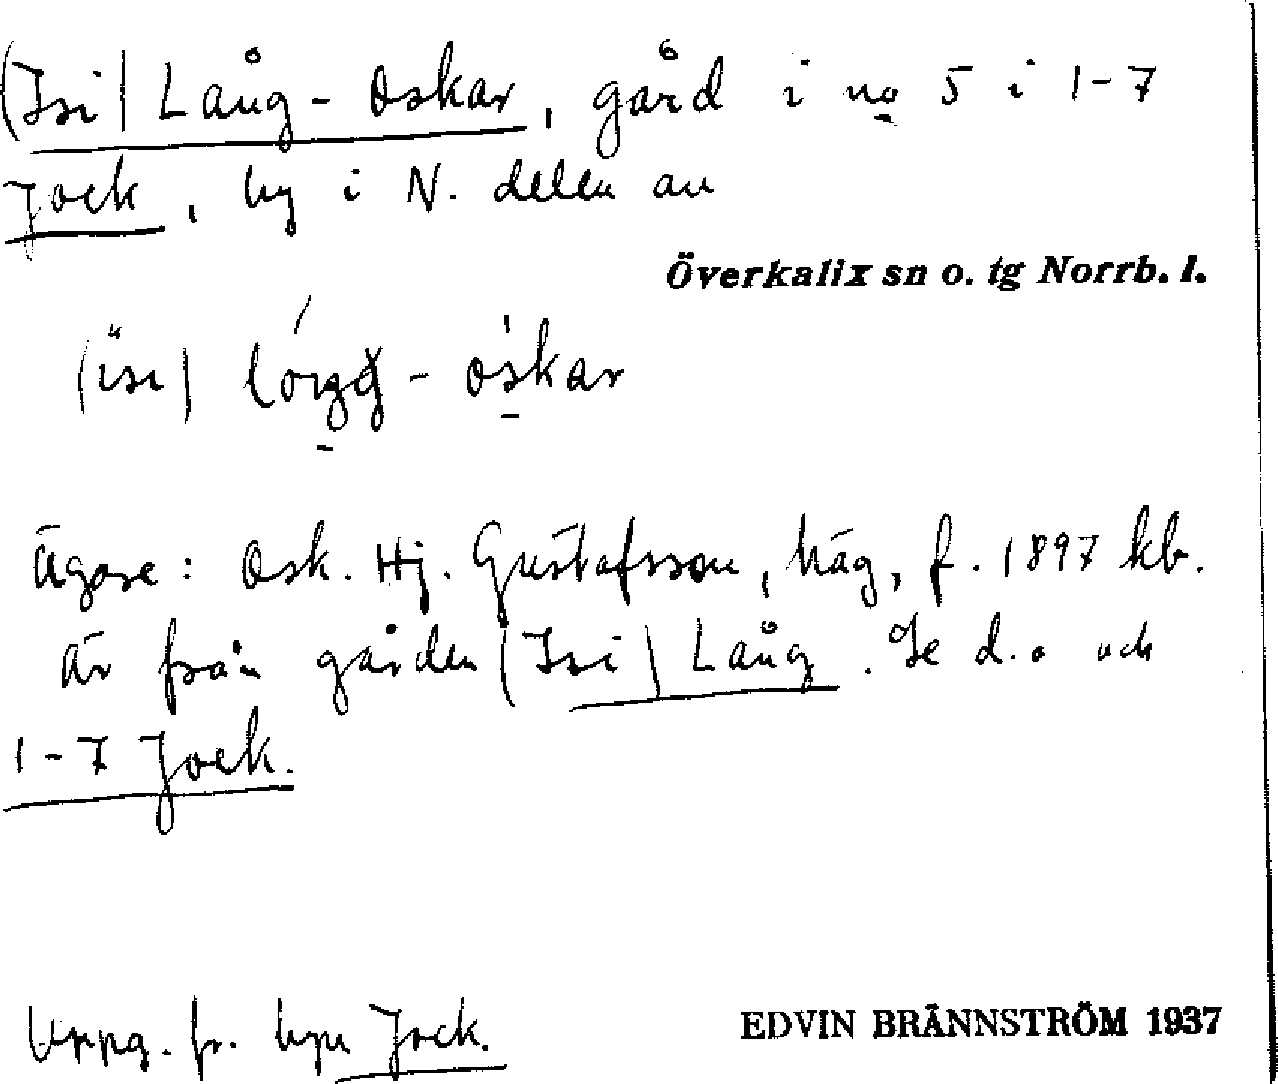 (Isi) Lång-Oskar, gård i no 5 i 1-7
Jock, by i N. delen av
Överkalix sn o. tg Norrb. l.
(isi) -oskar
Ägare: Osk. Hj. Gustafsson, häg, f. 1897 kb.
Är från gården (Isi) Lång. Se d.o och
1-7 Jock.
Uppg. fr. byn Jock.
EDVIN BRÄNNSTRÖM 1937